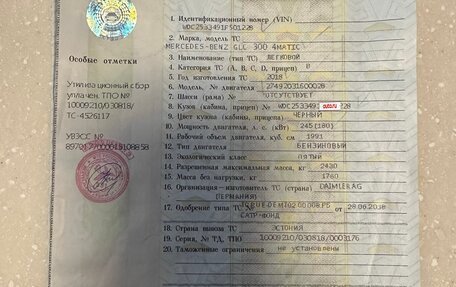 Особые отметки
Утилизационный сбор
уплачен. ТПО №
10009210/030818/
ТС-4526117
УВЭОС №
1. Идентификационный номер (VIN)
WDC2533491F501228
2. Марка, модель ТС
MERCEDES-BENZ GLC 300 4MATIC
3. Наименование (тип ТС) ЛЕГКОВОЙ
4. Категория ТС (A, B, C, D, прицеп) B
5. Год изготовления ТС 2018
6. Модель, № двигателя 27492031600028
7. Шасси (рама) № ОТСУТСТВУЕТ
8. Кузов (кабина, прицеп) № WDC2533491 auto.ru 228
9. Цвет кузова (кабины, прицепа) ЧЕРНЫЙ
10. Мощность двигателя, л. с. (кВт) 245(180)
11. Рабочий объем двигателя, куб. см 1991
12. Тип двигателя БЕНЗИНОВЫЙ
13. Экологический класс ПЯТЫЙ
14. Разрешенная максимальная масса, кг 2430
15. Масса без нагрузки, кг 1760
16. Организация-изготовитель ТС (страна) DAIMLER AG
(ГЕРМАНИЯ)
17. Одобрение типа ТС № от 28.06.2018
САТР-ФОНД
18. Страна вывоза ТС ЭСТОНИЯ
19. Серия, № ТД, ТПО 10009210/030818/0003176
20. Таможенные ограничения не установлены